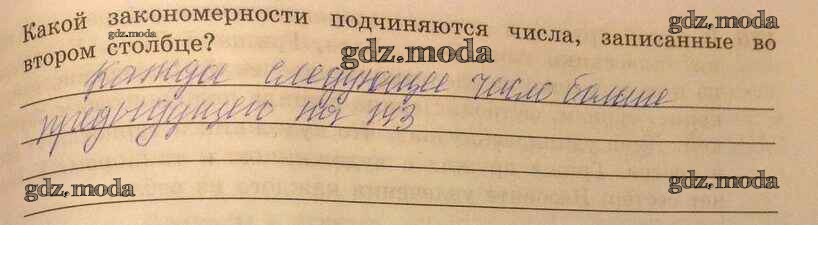 Какой закономерности подчиняются числа, записанные во
втором столбце?
каждое следующее число больше
предыдущего на 143
gdz.moda
gdz.moda
gdz.moda
gdz.moda
gdz.moda
gdz.moda